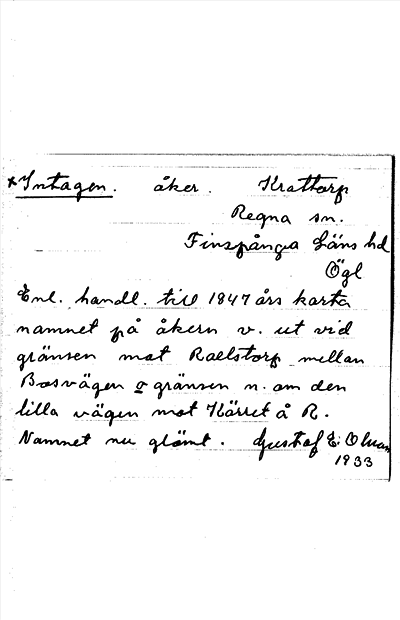 *Intagen. åker. Krattorp
Regna sn.
Finspånga Läns hd
Ögl
Enl. handl. till 1847 års karta
namnet på åkern v. ut vid
gränsen mot Raelstorp mellan
Bosvägen o gränsen n. om den
lilla vägen mot Kärret å R.
Namnet nu glömt. Gustaf E: Olman
1933